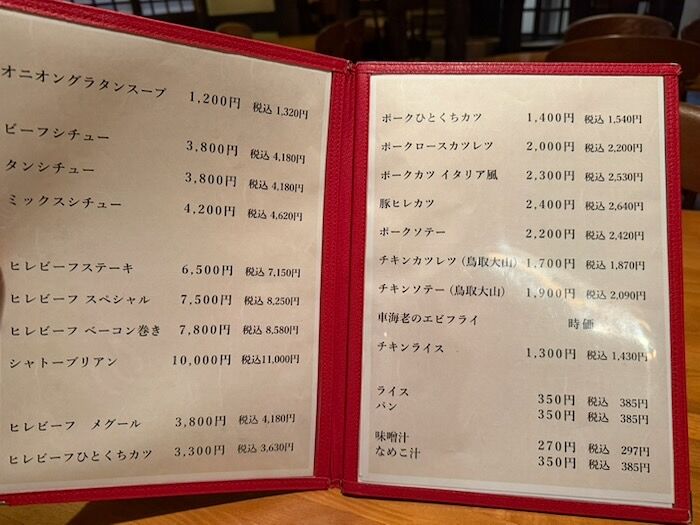 オニオングラタンスープ 1,200円 税込 1,320円
ビーフシチュー 3,800円 税込 4,180円
タンシチュー 3,800円 税込 4,180円
ミックスシチュー 4,200円 税込 4,620円
ヒレビーフステーキ 6,500円 税込 7,150円
ヒレビーフ スペシャル 7,500円 税込 8,250円
ヒレビーフ ベーコン巻き 7,800円 税込 8,580円
シャトーブリアン 10,000円 税込11,000円
ヒレビーフ メグール 3,800円 税込 4,180円
ヒレビーフひとくちカツ 3,300円 税込 3,630円
ポークひとくちカツ 1,400円 税込 1,540円
ポークロースカツレツ 2,000円 税込 2,200円
ポークカツ イタリア風 2,300円 税込 2,530円
豚ヒレカツ 2,400円 税込 2,640円
ポークソテー 2,200円 税込 2,420円
チキンカツレツ (鳥取大山) 1,700円 税込 1,870円
チキンソテー (鳥取大山) 1,900円 税込 2,090円
車海老のエビフライ 時価
チキンライス 1,300円 税込 1,430円
ライス 350円 税込 385円
パン 350円 税込 385円
味噌汁 270円 税込 297円
なめこ汁 350円 税込 385円